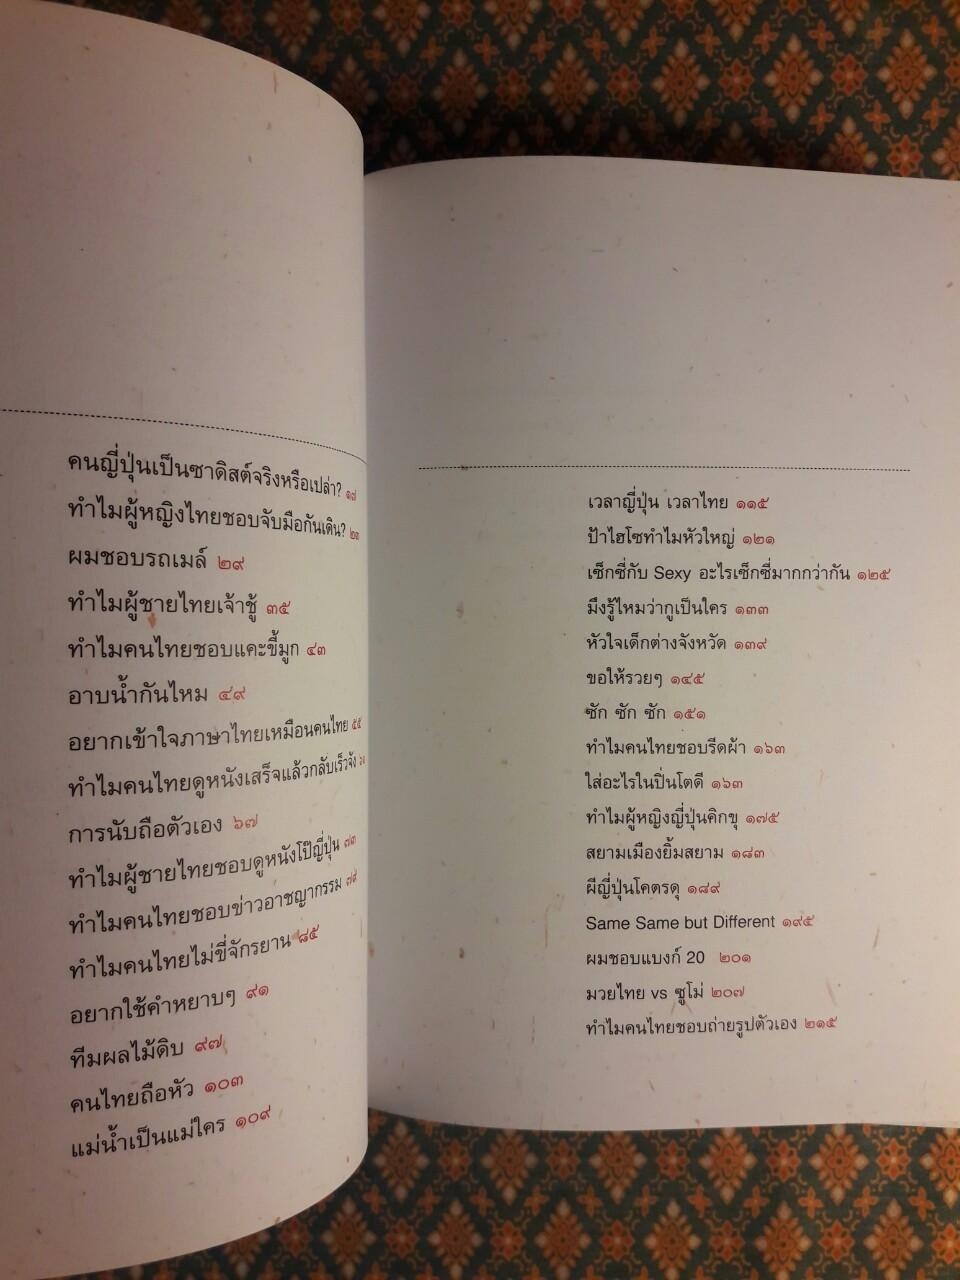 คนญี่ปุ่นเป็นซาดิสต์จริงหรือเปล่า? ๑๗
ทำไมผู้หญิงไทยชอบจับมือกันเดิน? ๒๓
ผมชอบรถเมล์ ๒๙
ทำไมผู้ชายไทยเจ้าชู้ ๓๕
ทำไมคนไทยชอบแคะขี้มูก ๔๓
อาบน้ำกันไหม ๔๙
อยากเข้าใจภาษาไทยเหมือนคนไทย ๕๕
ทำไมคนไทยดูหนังเสร็จแล้วกลับเร็วจัง ๖๑
การนับถือตัวเอง ๖๗
ทำไมผู้ชายไทยชอบดูหนังโป๊ญี่ปุ่น ๗๓
ทำไมคนไทยชอบข่าวอาชญากรรม ๗๙
ทำไมคนไทยไม่ขี่จักรยาน ๘๕
อยากใช้คำหยาบๆ ๙๑
ทีมผลไม้ดิบ ๙๗
คนไทยถือหัว ๑๐๓
แม่น้ำเป็นแม่ใคร ๑๐๙
เวลาญี่ปุ่น เวลาไทย ๑๑๕
ป้าไฮโซทำไมหัวใหญ่ ๑๒๑
เซ็กซี่กับ Sexy อะไรเซ็กซี่มากกว่ากัน ๑๒๕
มึงรู้ไหมว่ากูเป็นใคร ๑๓๓
หัวใจเด็กต่างจังหวัด ๑๓๙
ขอให้รวยๆ ๑๔๕
ซัก ซัก ซัก ๑๕๑
ทำไมคนไทยชอบรีดผ้า ๑๖๓
ใส่อะไรในปิ่นโตดี ๑๖๓
ทำไมผู้หญิงญี่ปุ่นคิกขุ ๑๗๕
สยามเมืองยิ้มสยาม ๑๘๓
ผีญี่ปุ่นโคตรดุ ๑๘๙
Same Same but Different ๑๙๕
ผมชอบแบงก์ 20 ๒๐๑
มวยไทย vs ซูโม่ ๒๐๗
ทำไมคนไทยชอบถ่ายรูปตัวเอง ๒๑๕